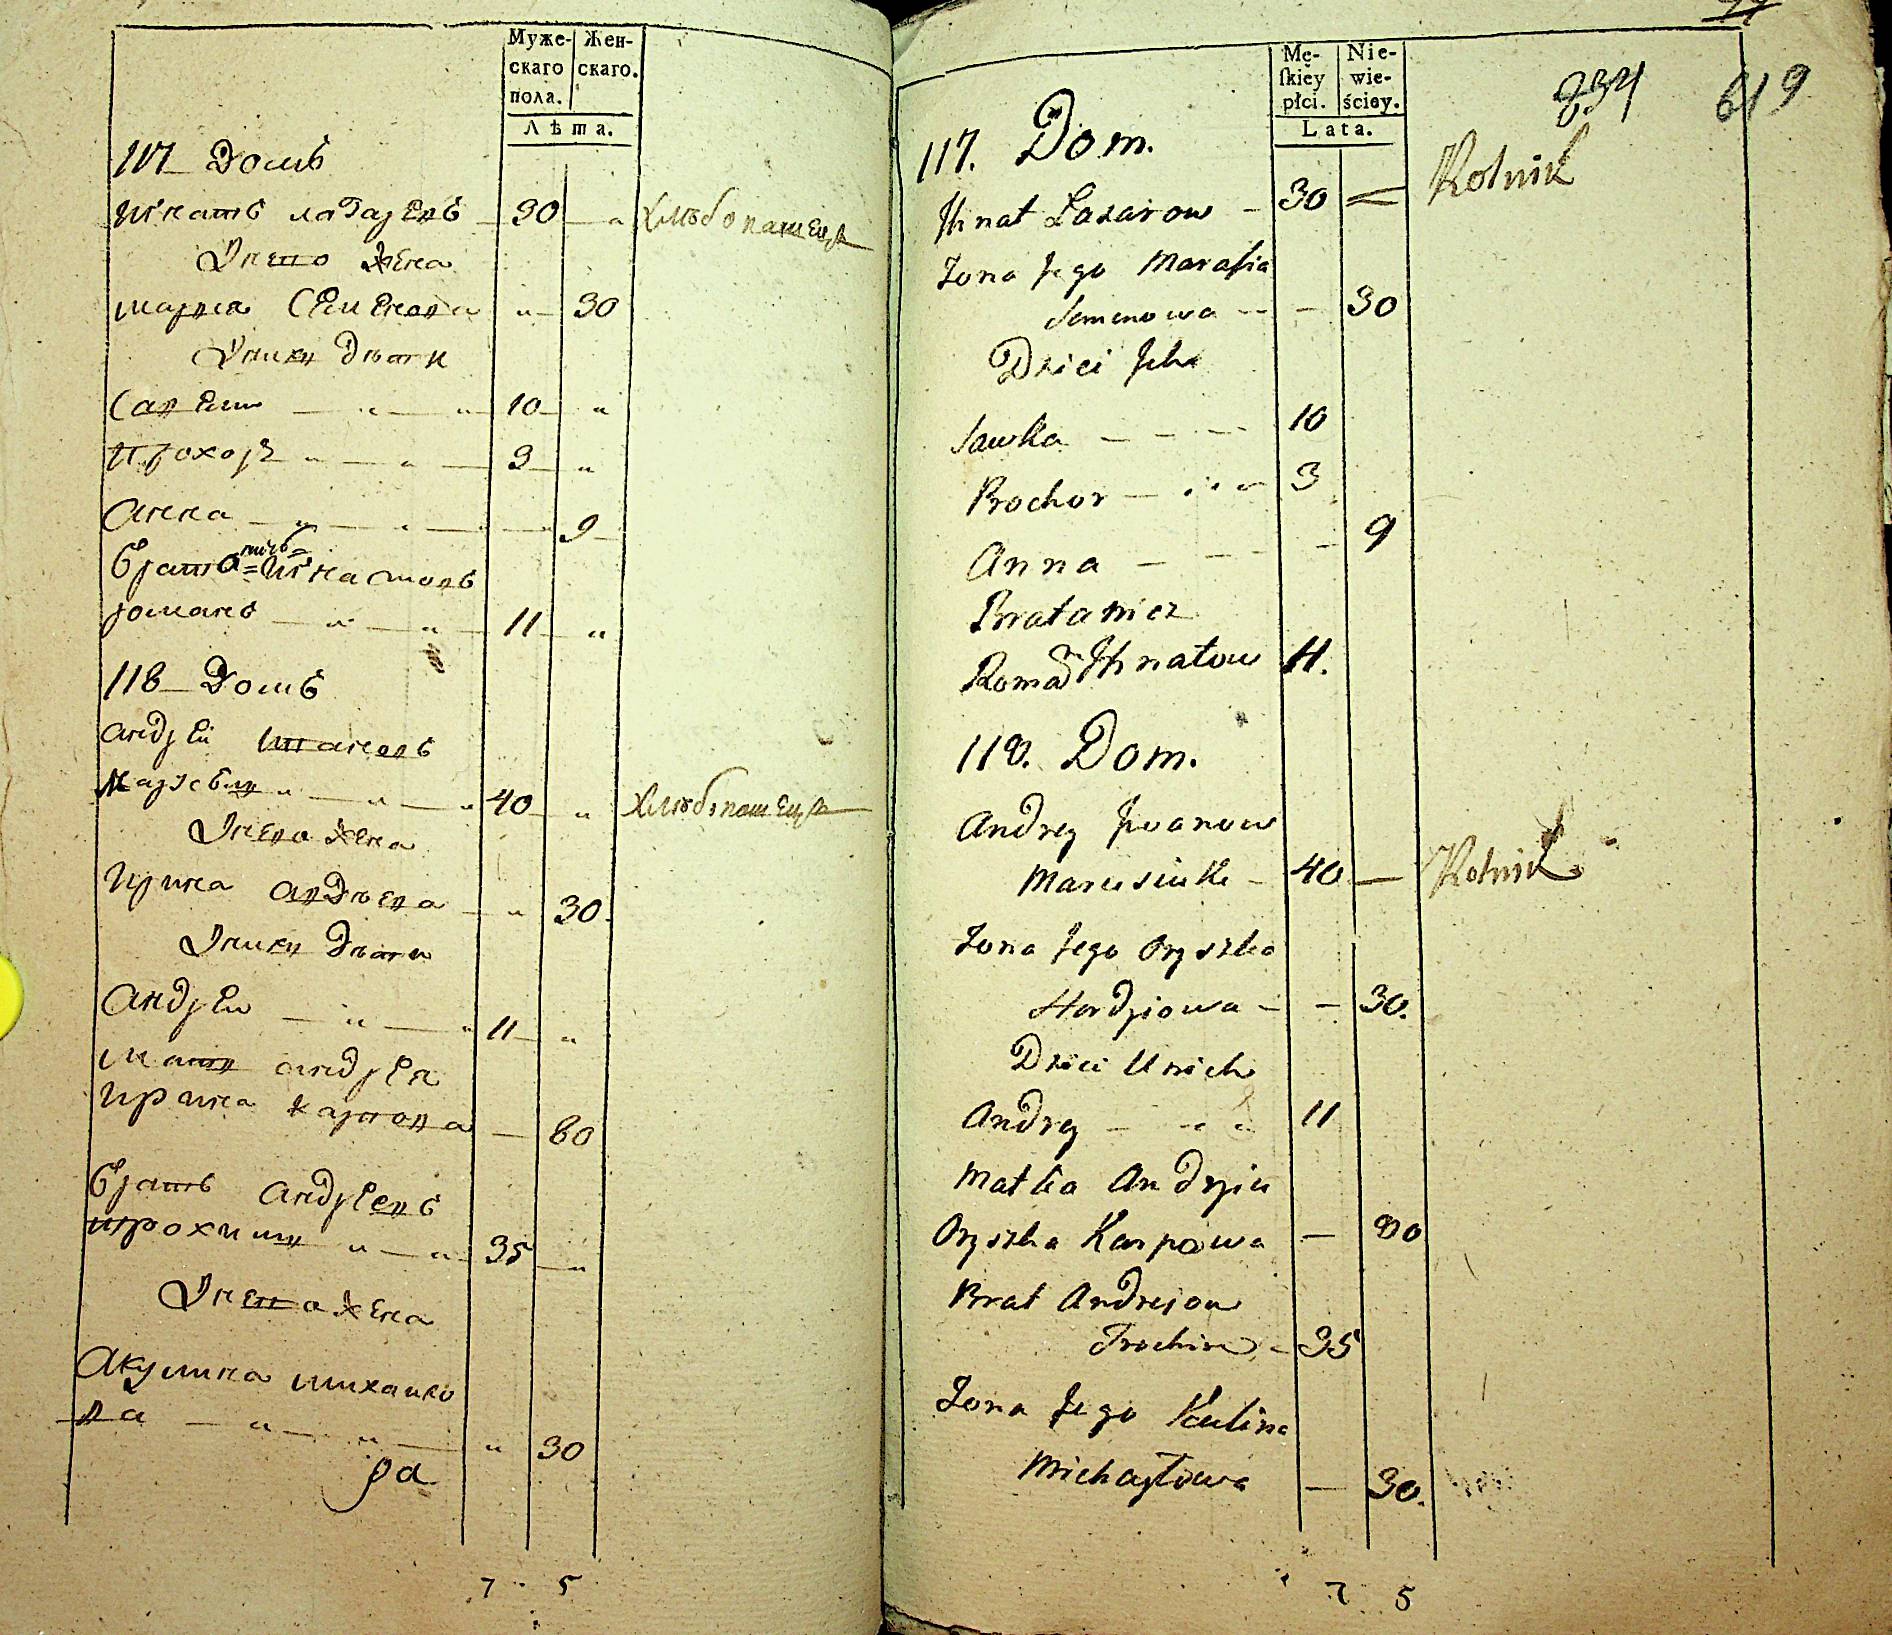 Муже- Жен-
скаго скаго.
пола.
Лѣта.
117 Домъ
Игнатъ Лазаревъ 30 " хлѣбопашецъ
У него жена
Марья Семенова " 30
У них дѣти
Савели " " 10 "
Прохоръ " " 3 "
Анна " " " 9
братаничъ Игнатовъ
Романъ " " 11 "
118 Домъ
Андрей Ивановъ
" " 40 " хлѣбопашецъ
У него жена
Ирина Авдѣева " 30
У них дѣти
Андрей " " 11 "
Мать Андрея
Ирина Карпова 80
братъ Андреевъ
Трохим " " 35 "
У него жена
Акулина Михайло
ва " " " 30
ра
7 5
834 619
Mę- Nie-
skiey wie-
płci. ściey.
Lata.
117. Dom.
Jhnat Lazarow 30 = Rolnik
Żona Jego Marasia
Semenowa - 30
Dzieci Jch
Sawka 10
Prochor 3
Anna - 9
Bratanicz
Roman Jhnatow 11.
118. Dom.
Andrey Jwanow
40 — Rolnik
Żona Jego Oryszka
Hordziowa - 30.
Dzieci U nich
Andrey 11
Matka Andryia
Oryszka Karpowa — 80
Brat Andrejow
Trochim - 35
Żona Jego Kulina
Michayłowa — 30.
7 5